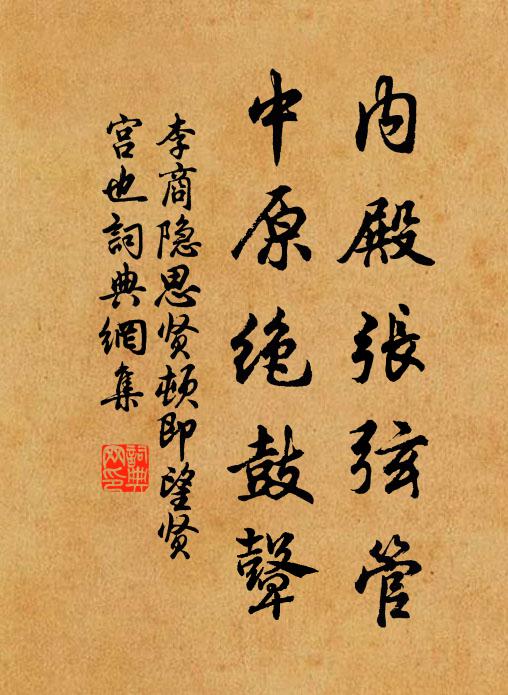 内殿張弦管
中原絶鼓鼙
李商隐思贤顿即望贤
宫也詞典網集
詞典
网印